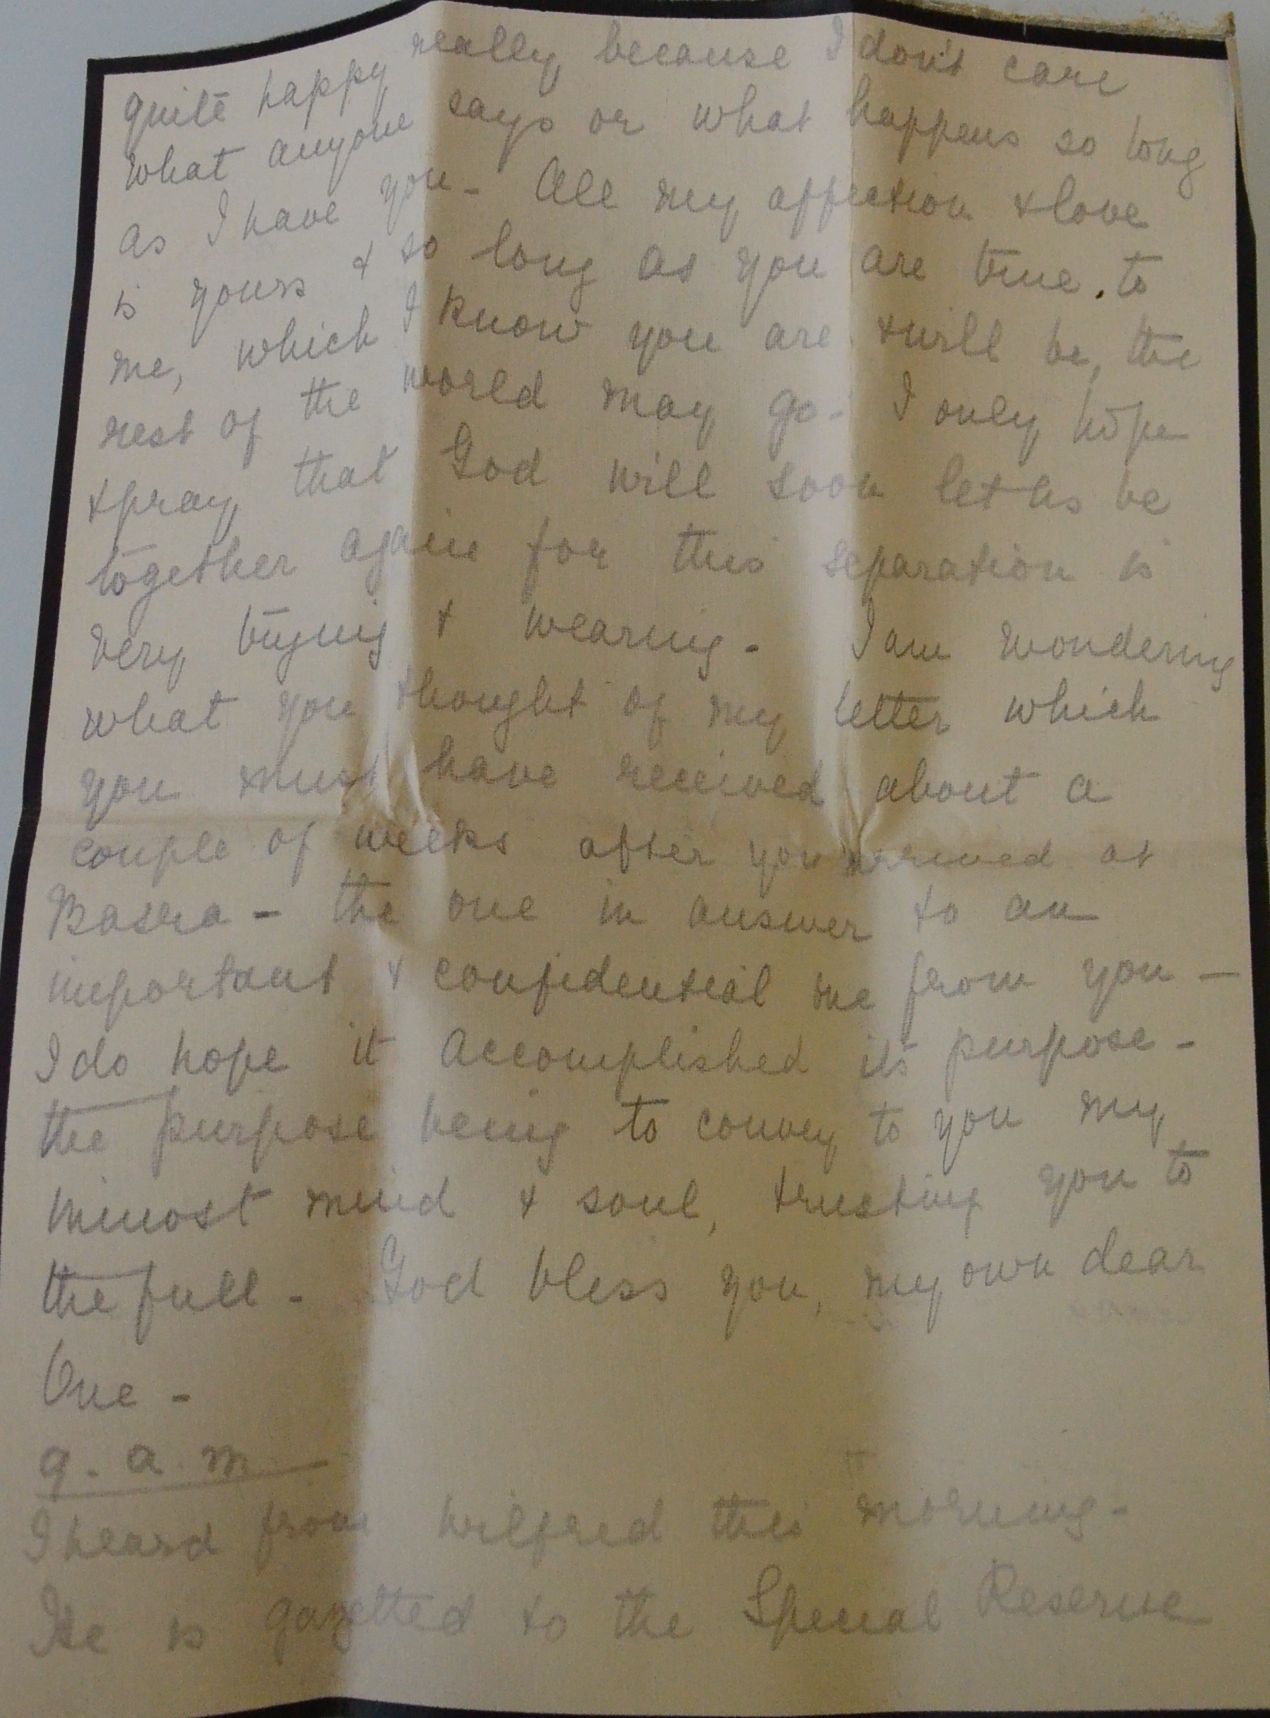 quite happy really because I don't care
what anyone says or what happens so long
as I have you - All my affection & love
is yours & so long as you are true to
me, which I know you are & will be, the
rest of the world may go - I only hope
& pray that God will soon let us be
together again for this separation is
very trying & wearing - I am wondering
what you thought of my letter which
you must have received about a
couple of weeks after you arrived at
Basra - the one in answer to an
important & confidential one from you -
I do hope it accomplished its purpose -
the purpose being to convey to you my
inmost mind & soul, trusting you to
the full - God bless you, my own dear
One -
9. a. m.
I heard from Wilfred this morning -
He is gazetted to the Special Reserve